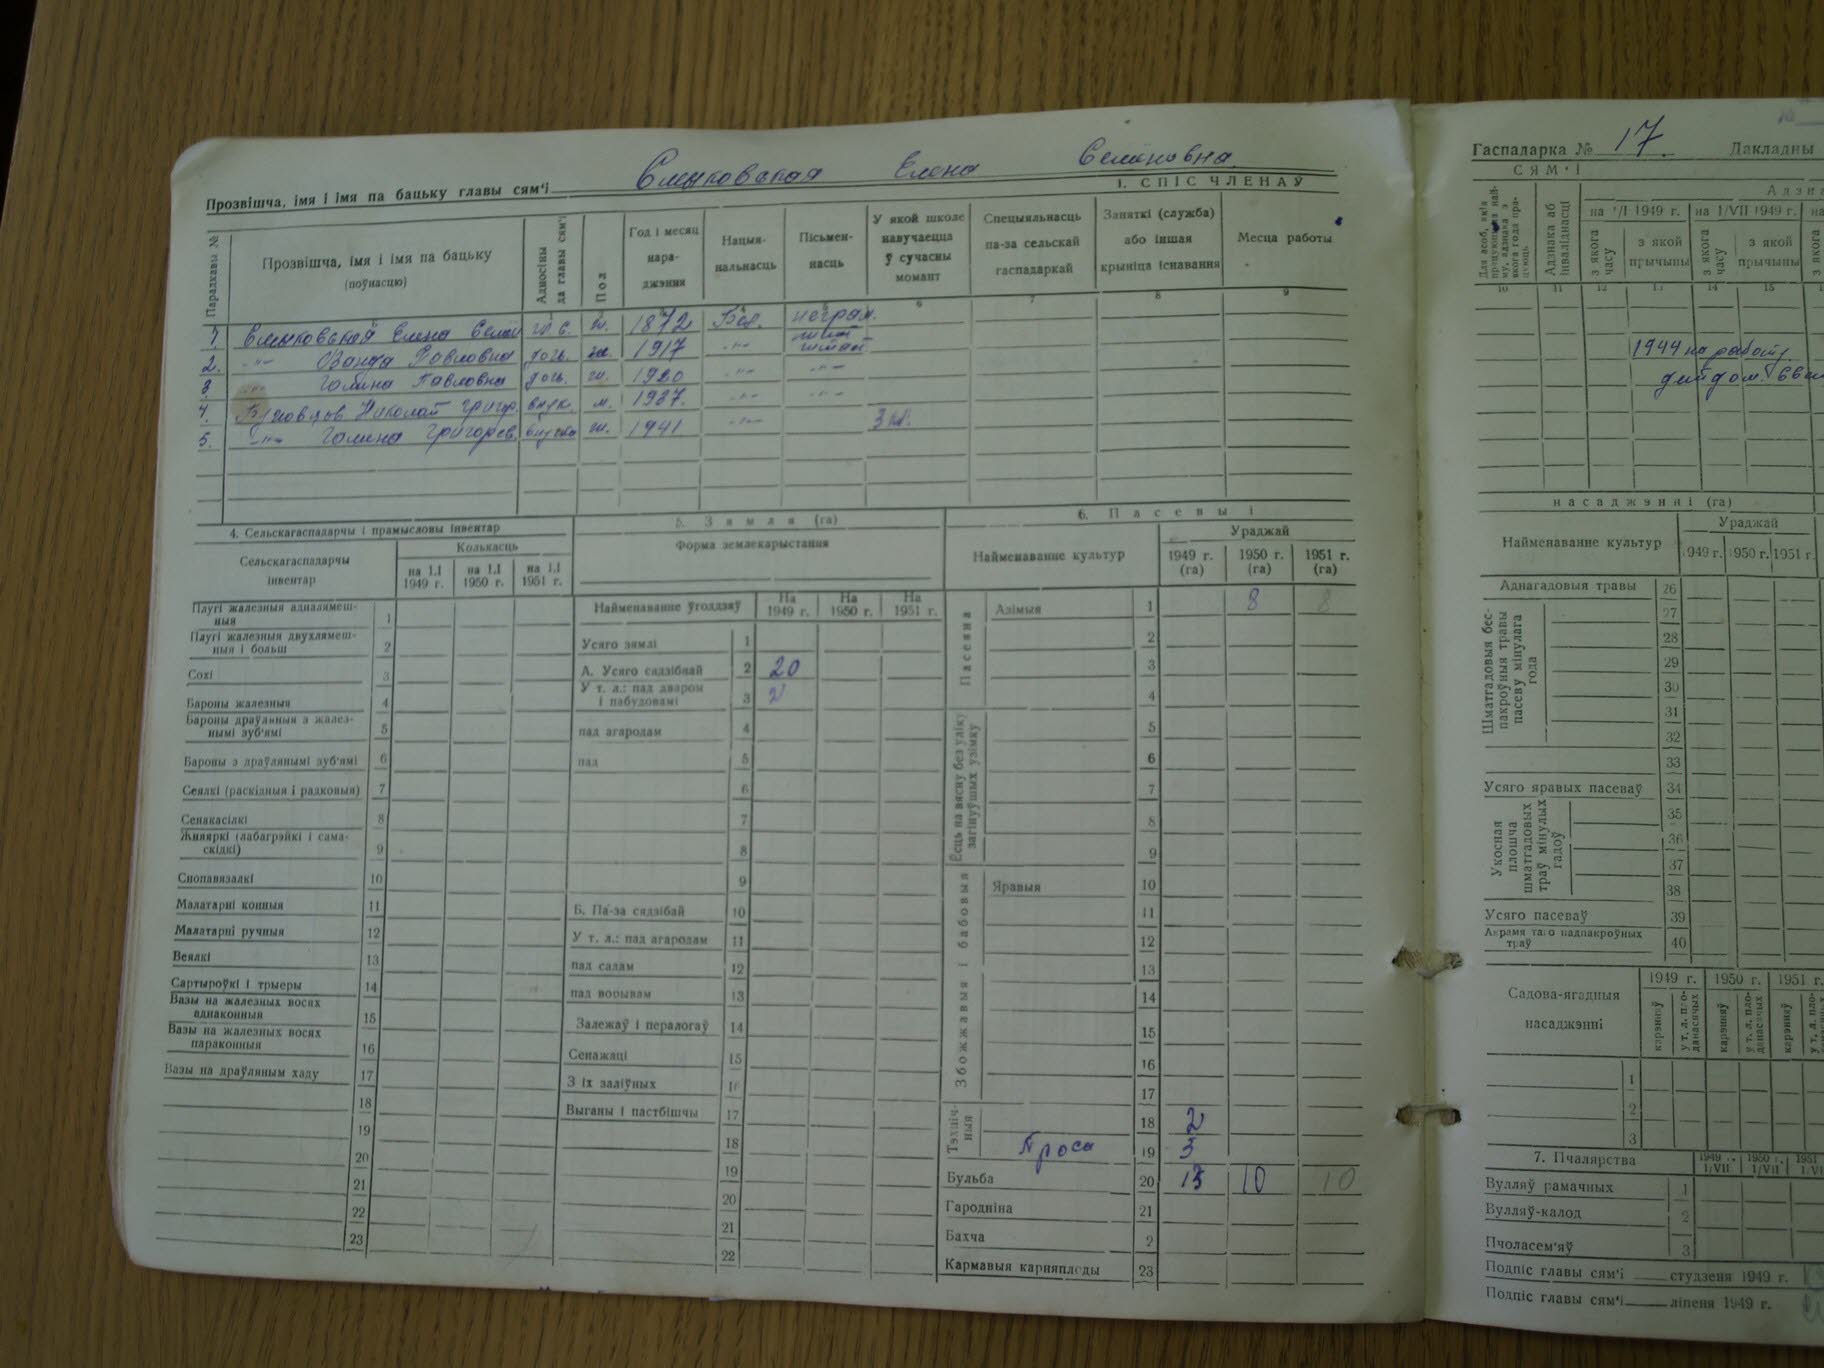 Прозвішча, імя і імя па бацьку главы сям'і Елена Семеновна
1. СПІС ЧЛЕНАЎ
Парадкавы №
Прозвішча, імя і імя па бацьку (поўнасцю)
Адносіны да главы сям'і
Пол
Год і месяц нараджэння
Нацыянальнасць
Пісьменнасць
У якой школе навучаецца ў сучасны момант
Спецыяльнасць па-за сельскай гаспадаркай
Заняткі (служба) або іншая крыніца існавання
Месца работы
6 7 8 9
1 Елена г. с. ж. 1872 Бел. неграм.
2. -"- Ванда Павловна дочь. ж. 1917 -"-
3 -"- Галина Павловна дочь. ж. 1920 -"- -"-
4. Николай Григор. внук. м. 1937. -"- -"-
5. -"- Галина Григорев. внучка ж. 1941 -"- 3 кл.
4. Сельскагаспадарчы і прамысловы інвентар
Сельскагаспадарчы інвентар
Колькасць
на 1.I 1949 г.
на 1.I 1950 г.
на 1.I 1951 г.
Плугі жалезныя адналямешныя 1
Плугі жалезныя двухлямешныя і больш 2
Сохі 3
Бароны жалезныя 4
Бароны драўляныя з жалезнымі зуб'ямі 5
Бароны з драўлянымі зуб'ямі 6
Сеялкі (раскідныя і радковыя) 7
Сенакасілкі 8
Жняяркі (лабагрэйкі і самаскідкі) 9
Снопавязалкі 10
Малатарні конныя 11
Малатарні ручныя 12
Веялкі 13
Сартыроўкі і трыеры 14
Вазы на жалезных восях аднаконныя 15
Вазы на жалезных восях параконныя 16
Вазы на драўляным хаду 17
18
19
20
21
22
23
5. Зямля (га)
Форма землекарыстання
Найменаванне ўгоддзяў
На 1949 г.
На 1950 г.
На 1951 г.
Усяго зямлі 1
А. Усяго сядзібнай 2 20
У т. л.: пад дваром і пабудовамі 3 2
пад агародам 4
пад 5
6
7
8
9
Б. Па-за сядзібай 10
У т. л.: пад агародам 11
пад садам 12
пад ворывам 13
Залежаў і пералогаў 14
Сенажаці 15
З іх заліўных 16
Выганы і пастбішчы 17
18
19
20
21
22
6. Пасевы і
Найменаванне культур
Ураджай
1949 г. (га)
1950 г. (га)
1951 г. (га)
Пасеяна
Азімыя 1 8 8
2
3
4
Ёсць на вясну без уліку загінуўшых узімку
5
6
7
8
9
Збожжавыя і бабовыя
Яравыя 10
11
12
13
14
15
16
17
Тэхнічныя
18 2
Проса 19 3
Бульба 20 13 10 10
Гародніна 21
Бахча 2
Кармавыя карняплоды 23
Гаспадарка № 17. Дакладны
СЯМ'І
Адзна
Адзнака аб інваліднасці
на 1/I 1949 г.
на 1/VII 1949 г.
на
з якога часу
з якой прычыны
з якога часу
з якой прычыны
з якога
10 11 12 13 14 15
1944 на работу.
насаджэнні (га)
Найменаванне культур
Ураджай
1949 г. 1950 г. 1951 г.
Аднагадовыя травы 26
Шматгадовыя беспакроўныя травы пасеву мінулага года
27
28
29
30
31
32
33
Усяго яравых пасеваў 34
Укосная плошча шматгадовых траў мінулых гадоў
35
36
37
38
Усяго пасеваў 39
Акрамя таго падпакроўных траў 40
Садова-ягадныя насаджэнні
1949 г. 1950 г. 1951 г.
карэнняў
у т. л. пладанасячых
карэнняў
у т. л. пладанасячых
карэнняў
1
2
3
7. Пчалярства
1949 г. 1/VII
1950 г. 1/VII
1951
Вулляў рамачных 1
Вулляў-калод 2
Пчоласем'яў 3
Подпіс главы сям'і студзеня 1949 г.
Подпіс главы сям'і ліпеня 1949 г.